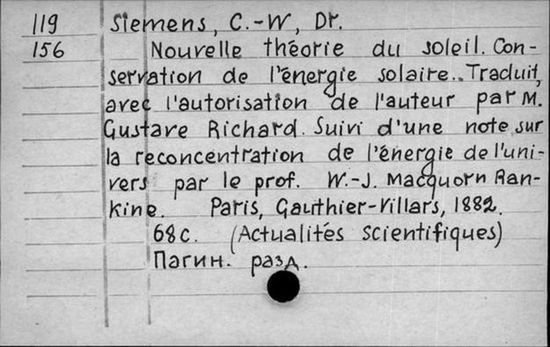 119 Siemens, C.-W, Dr.
156 Nouvelle théorie du soleil. Con-
servation de l'énergie solaire.. Traduit,
avec l'autorisation de l'auteur par M.
Gustave Richard. Suivi d'une note sur
la reconcentration de l'énergie de l'uni-
vers par le prof. W.-J. Macquorn Ran-
kine. Paris, Gauthier-Villars, 1882.
68c. (Actualités scientifiques)
Пагин. разд.